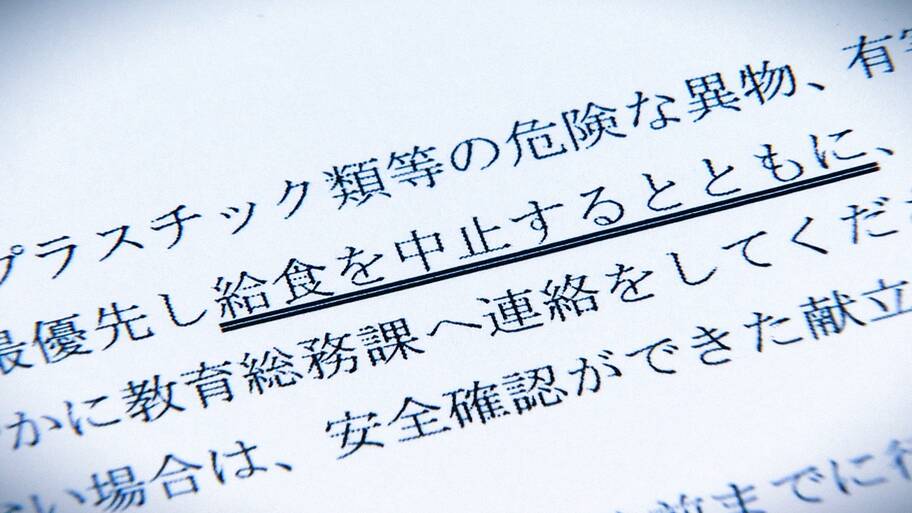 プラスチック類等の危険な異物、有
最優先し給食を中止するとともに、
かに教育総務課へ連絡をしてくだ
い場合は、安全確認ができた献立
前までに行